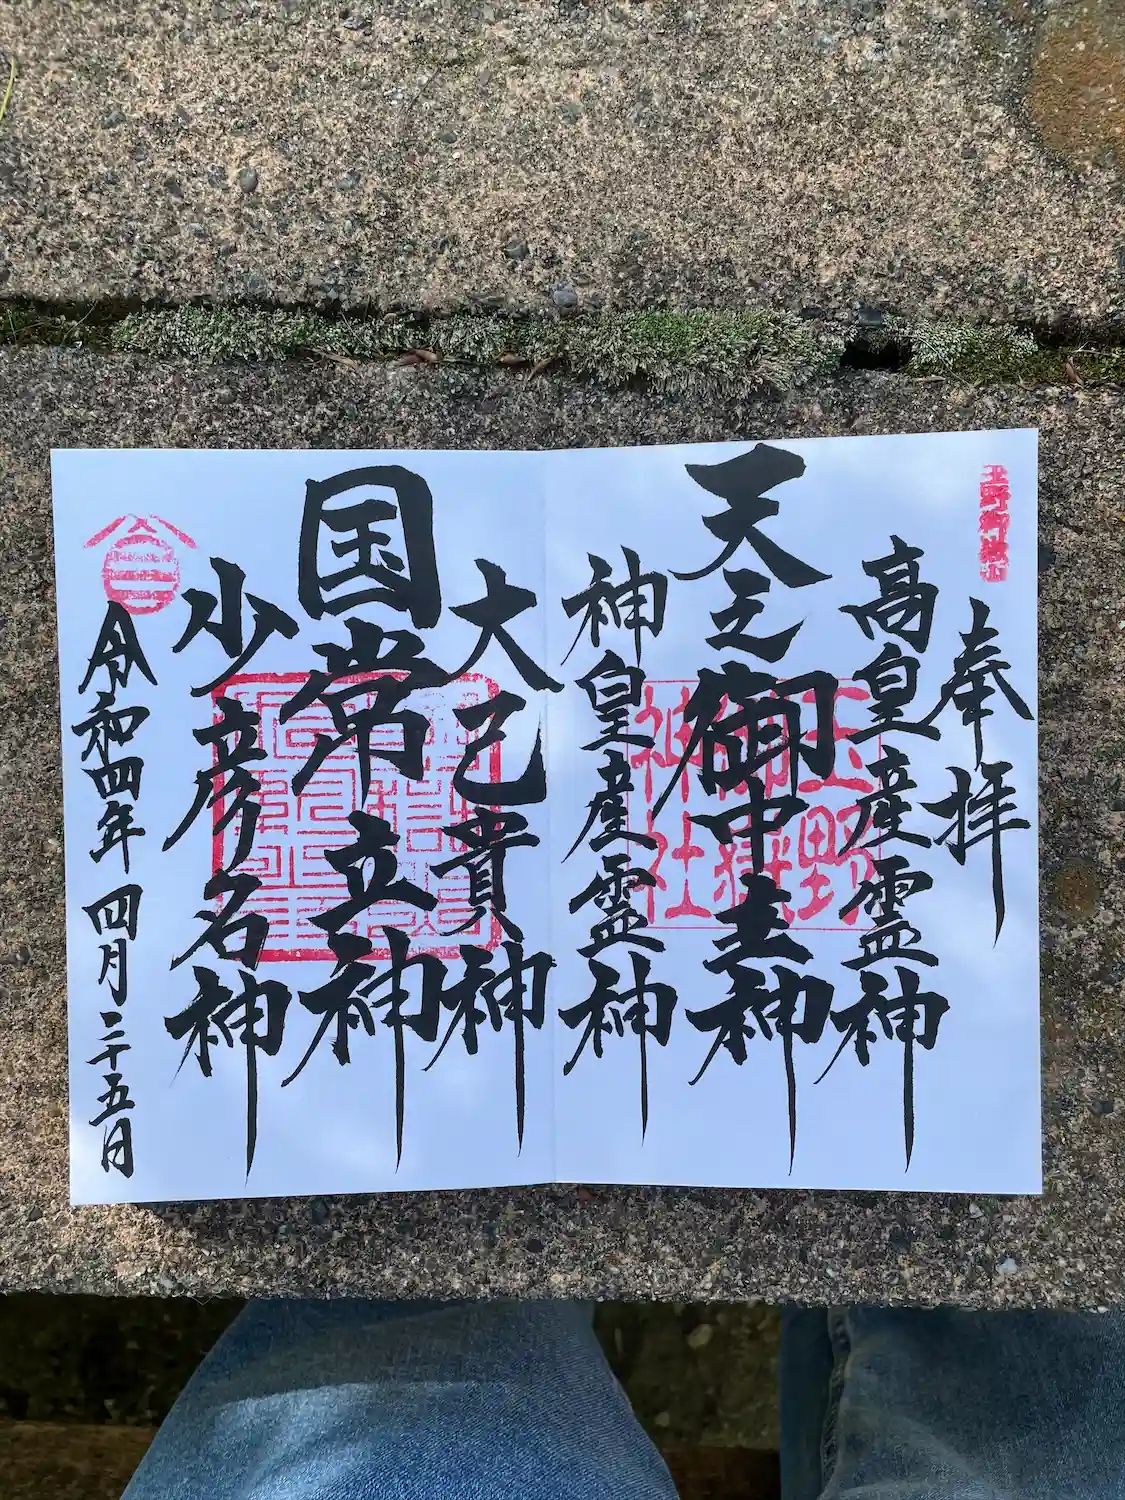 奉拝
高皇産霊神
天之御中主神
神皇産霊神
大己貴神
国常立神
少彦名神
令和四年四月二十五日
玉野御嶽
神社